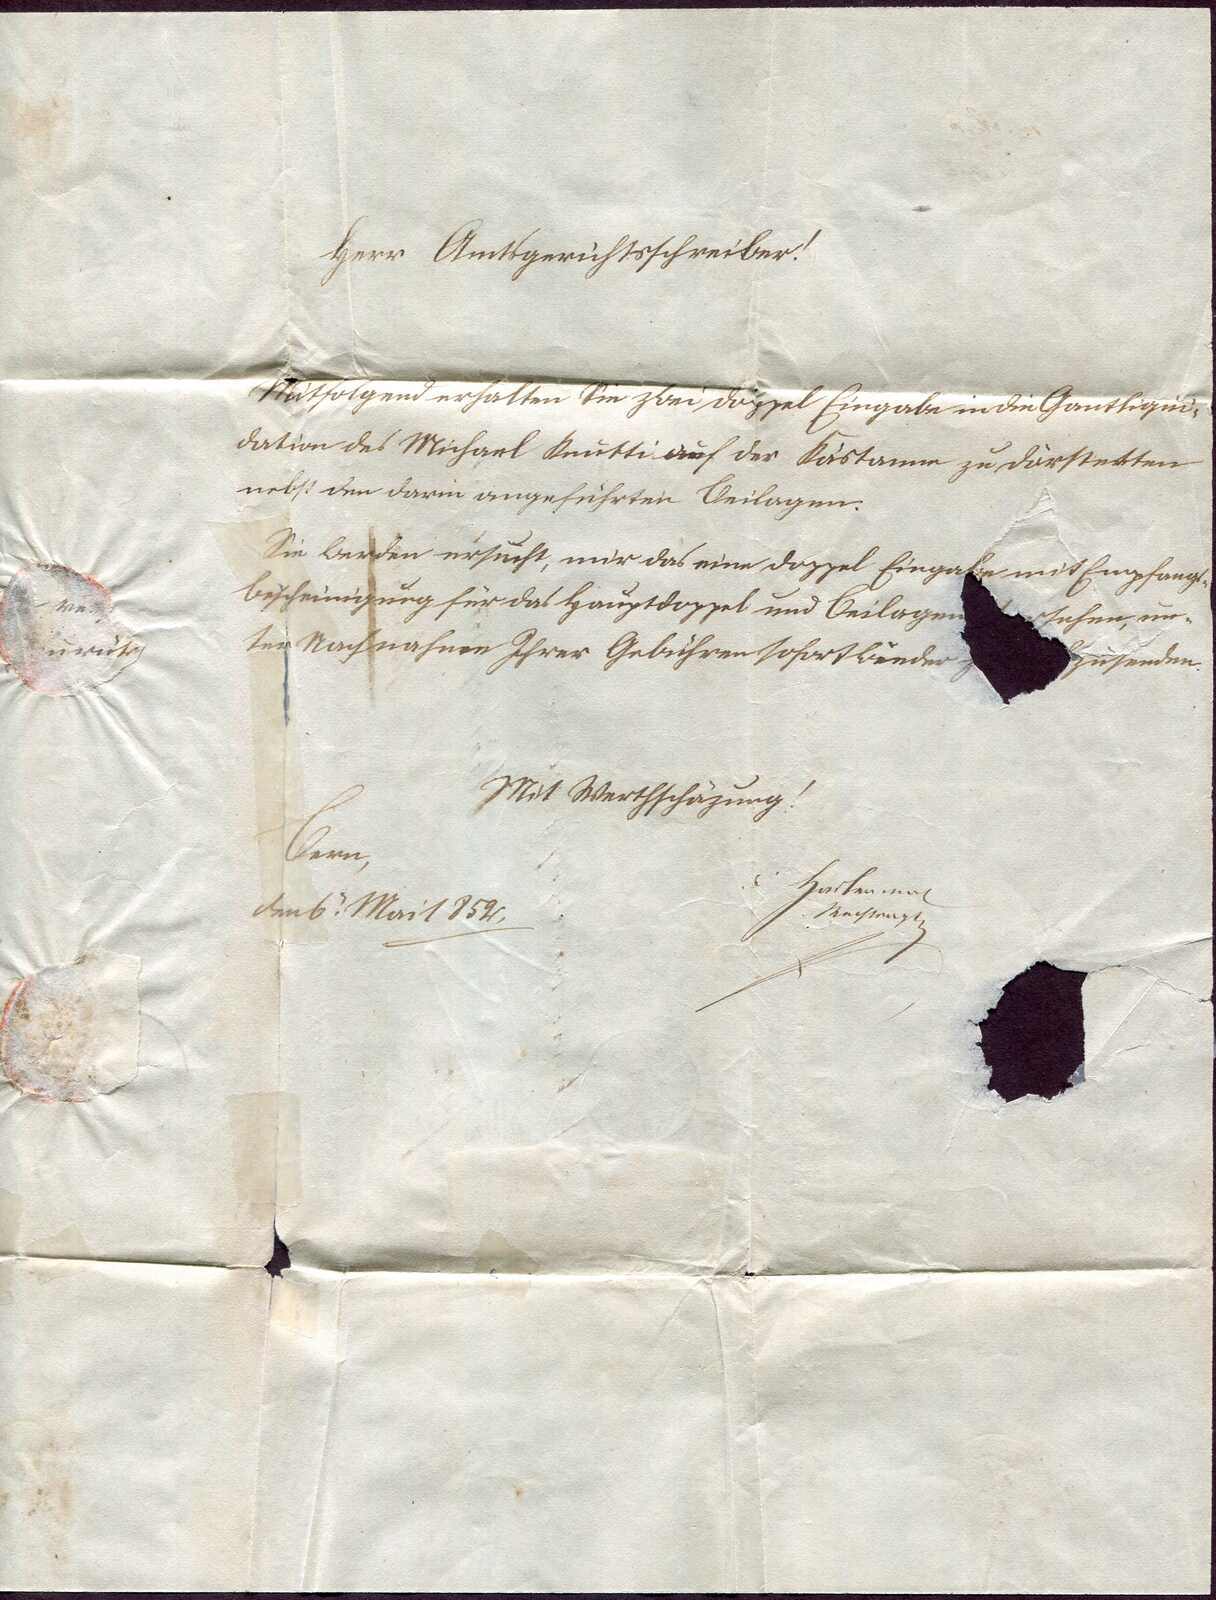 Herr Amtsgerichtsschreiber!
Mitfolgend erhalten Sie zwei doppel Eingabe in die Gantliqui-
dation des Michael Knutti auf der Kästanne zu Därstetten
nebst den darin angeführten Beilagen.
Sie werden ersucht, mir das eine doppel Eingabe mit Empfangs-
bescheinigung für das Hauptdoppel und Beilagen sehen, un-
ter Nachnahme Ihrer Gebühren sofort wieder zusenden.
ver
zurük
Mit Werthschäzung!
Bern,
den 6. Mai 1852.